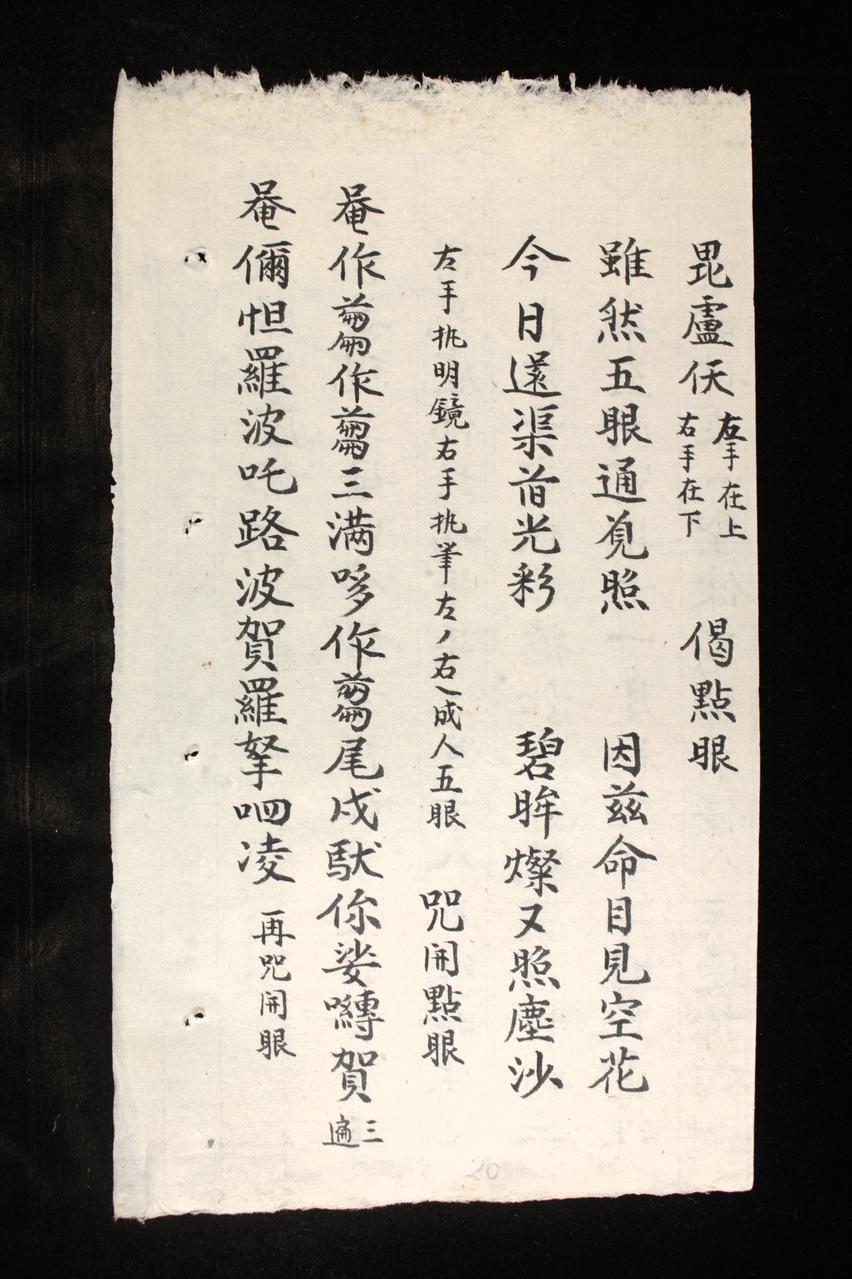 毘盧仸 左手在上 右手在下 偈點眼
雖然五眼通䒶照 因玆命目見空花
今日還渠首光彩 碧眸燦又照塵沙
左手执明鏡右手执筆左丿右乀成人五眼 咒開點眼
菴作蒭作蒭三满哆作蒭尾戍馱伱娑囀賀 三遍
菴儞怛羅波吒路波賀羅拏呬凌 再咒開眼
20